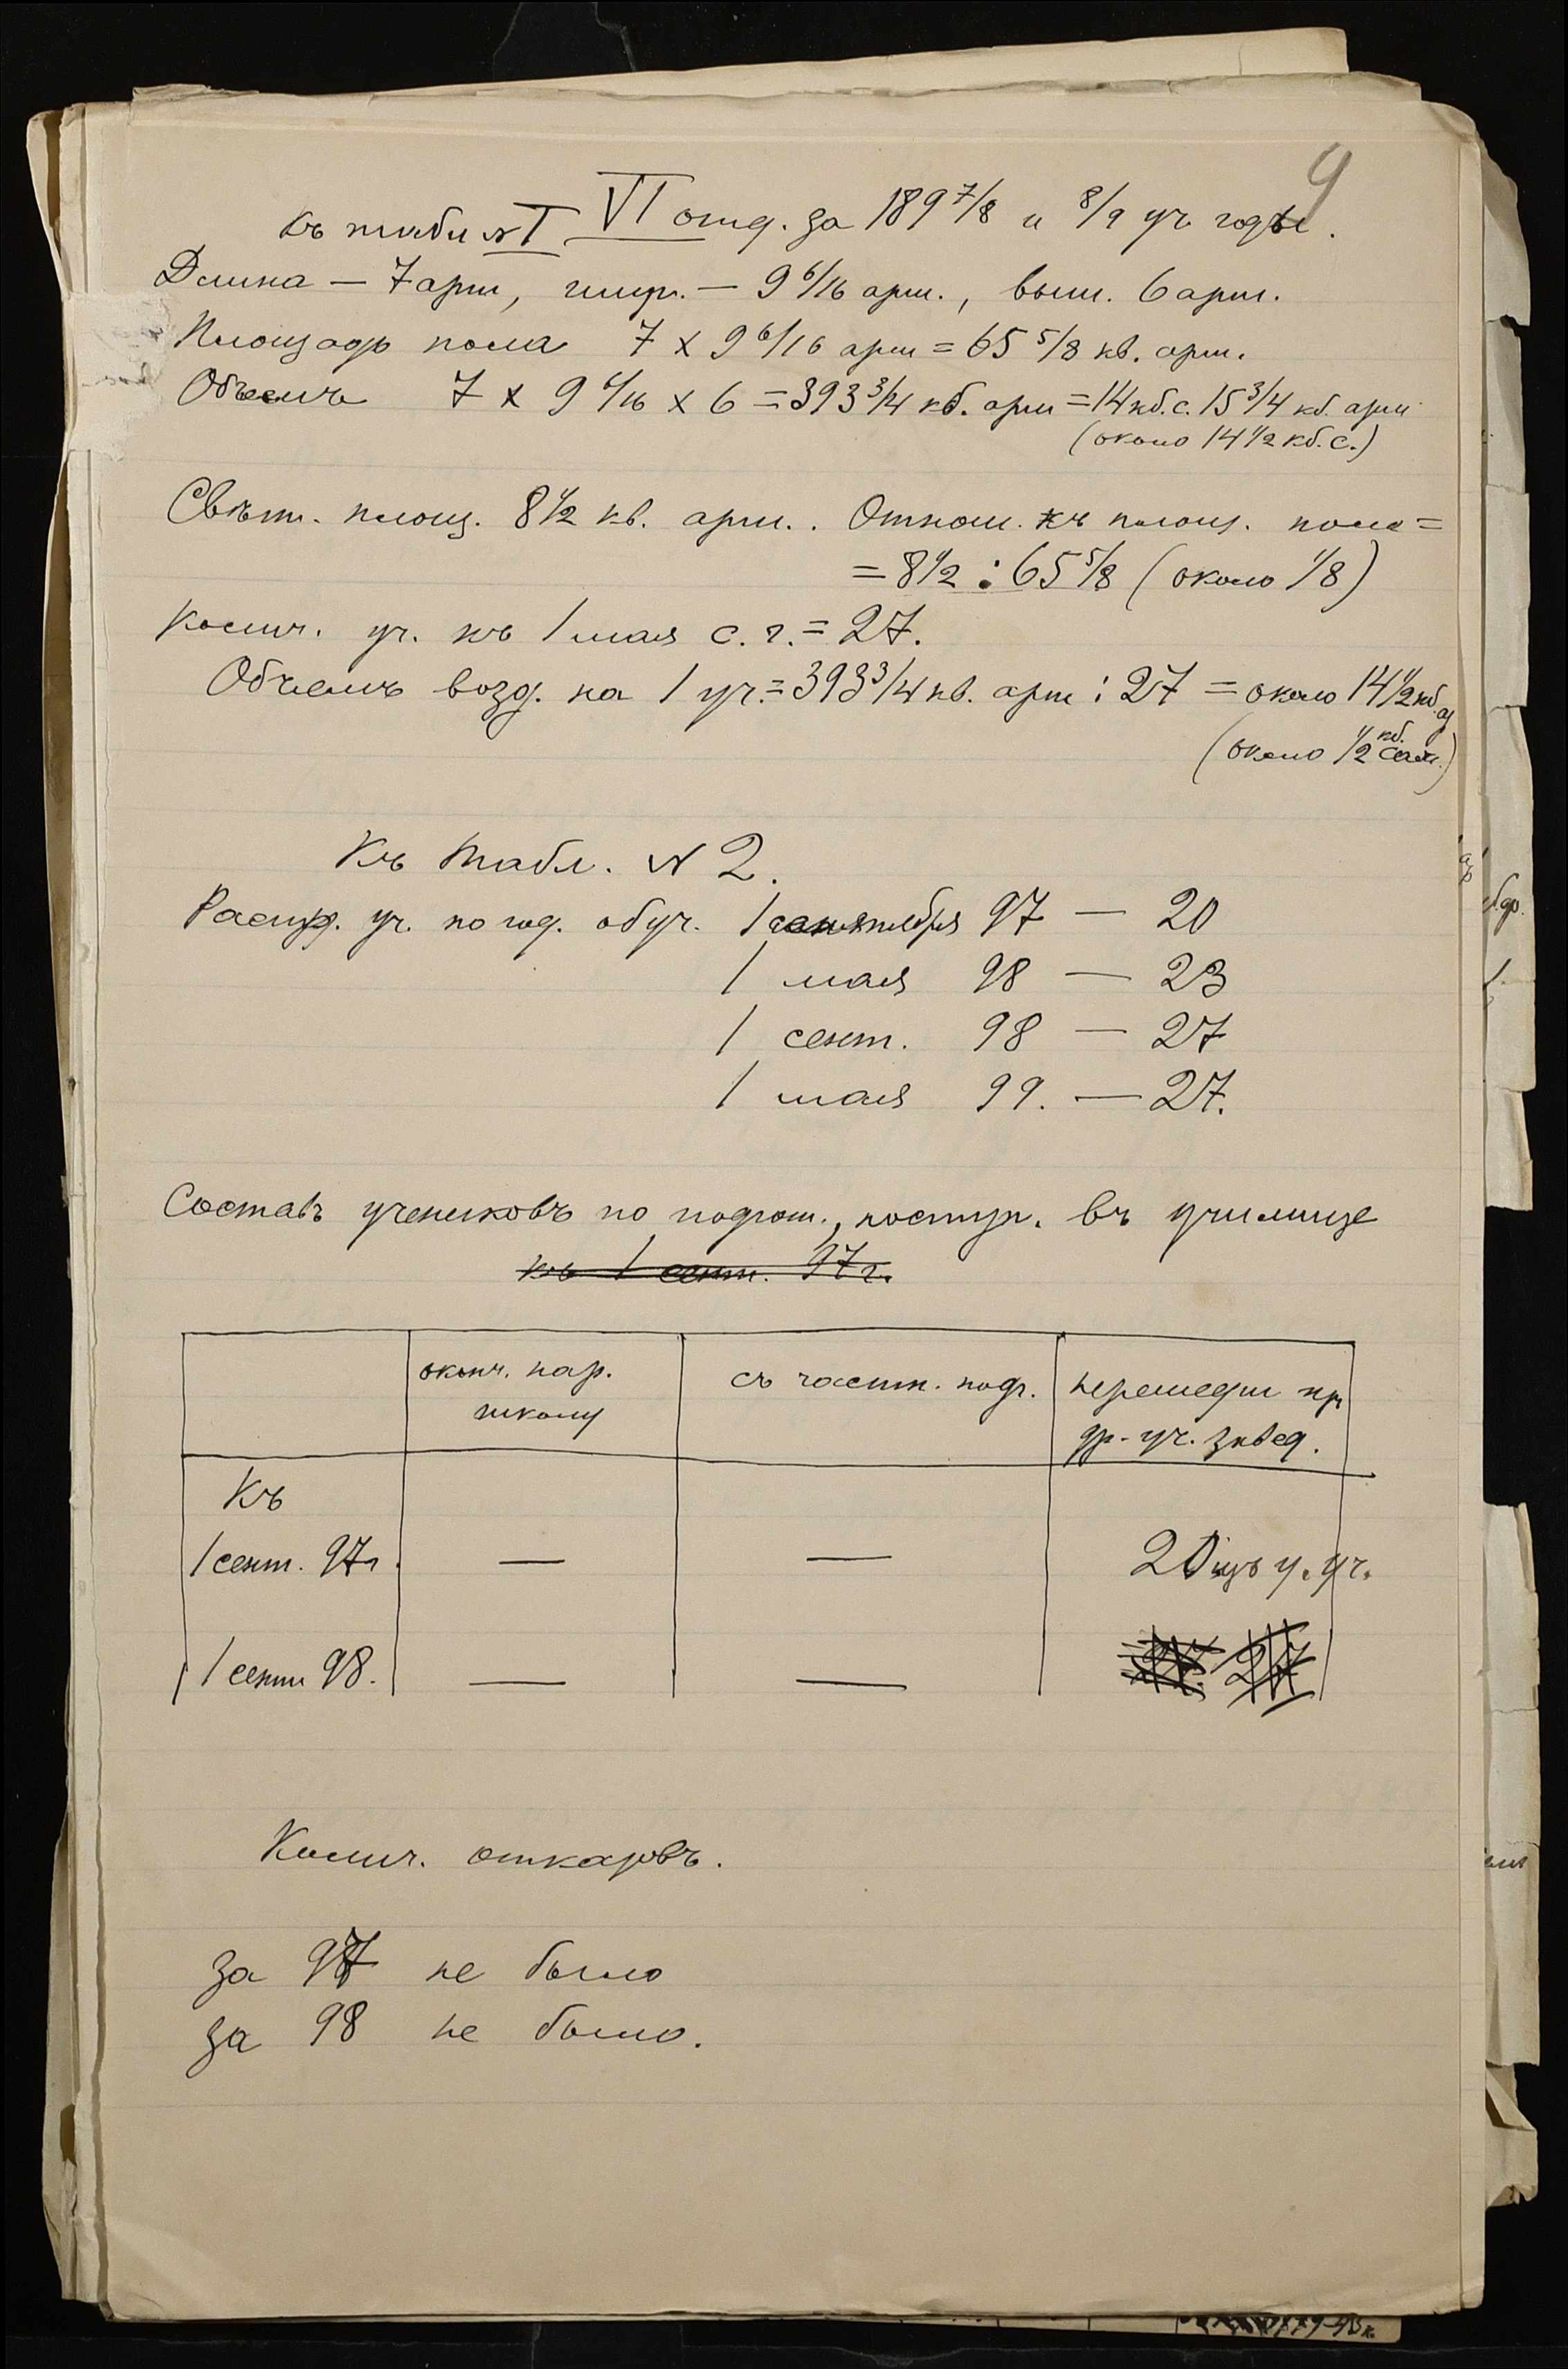 9
Къ табл № I VI отд. за 189 7/8 и 8/9 уч годы.
Длина — 7 арш, шир. — 9 6/16 арш., выш. 6 арш.
Площадь пола 7 х 9 6/16 арш = 65 5/8 кв. арш.
Объемъ 7 х 9 6/16 х 6 = 393 3/4 кб. арш = 14 кб. с. 15 3/4 кб. арш
(около 14 1/2 кб. с.)
Свѣт. площ. 8 1/2 кв. арш.. Отнош. къ площ. пола =
= 8 1/2 : 65 5/8 (около 1/8)
Колич. уч. къ 1 мая с. г. = 27.
Объемъ возд. на 1 уч. = 393 3/4 кв. арш : 27 = около 14 1/2 кб. а
(около 1/2 кб. саж.)
Къ табл. № 2.
Распр. уч. по год. обуч. 1 сентября 97 — 20
1 мая 98 — 23
1 сент. 98 — 27
1 мая 99. — 27.
Составъ учениковъ по подгот., поступ. въ училище
къ 1 сент. 97 г.
оконч. нар. школу
съ частн. подг.
перешедш из
др. уч. завед.
Къ
1 сент. 97 г. — — 20 изъ у. уч.
1 сент 98. — — 27
Колич. отказовъ.
за 97 не было
за 98 не было.